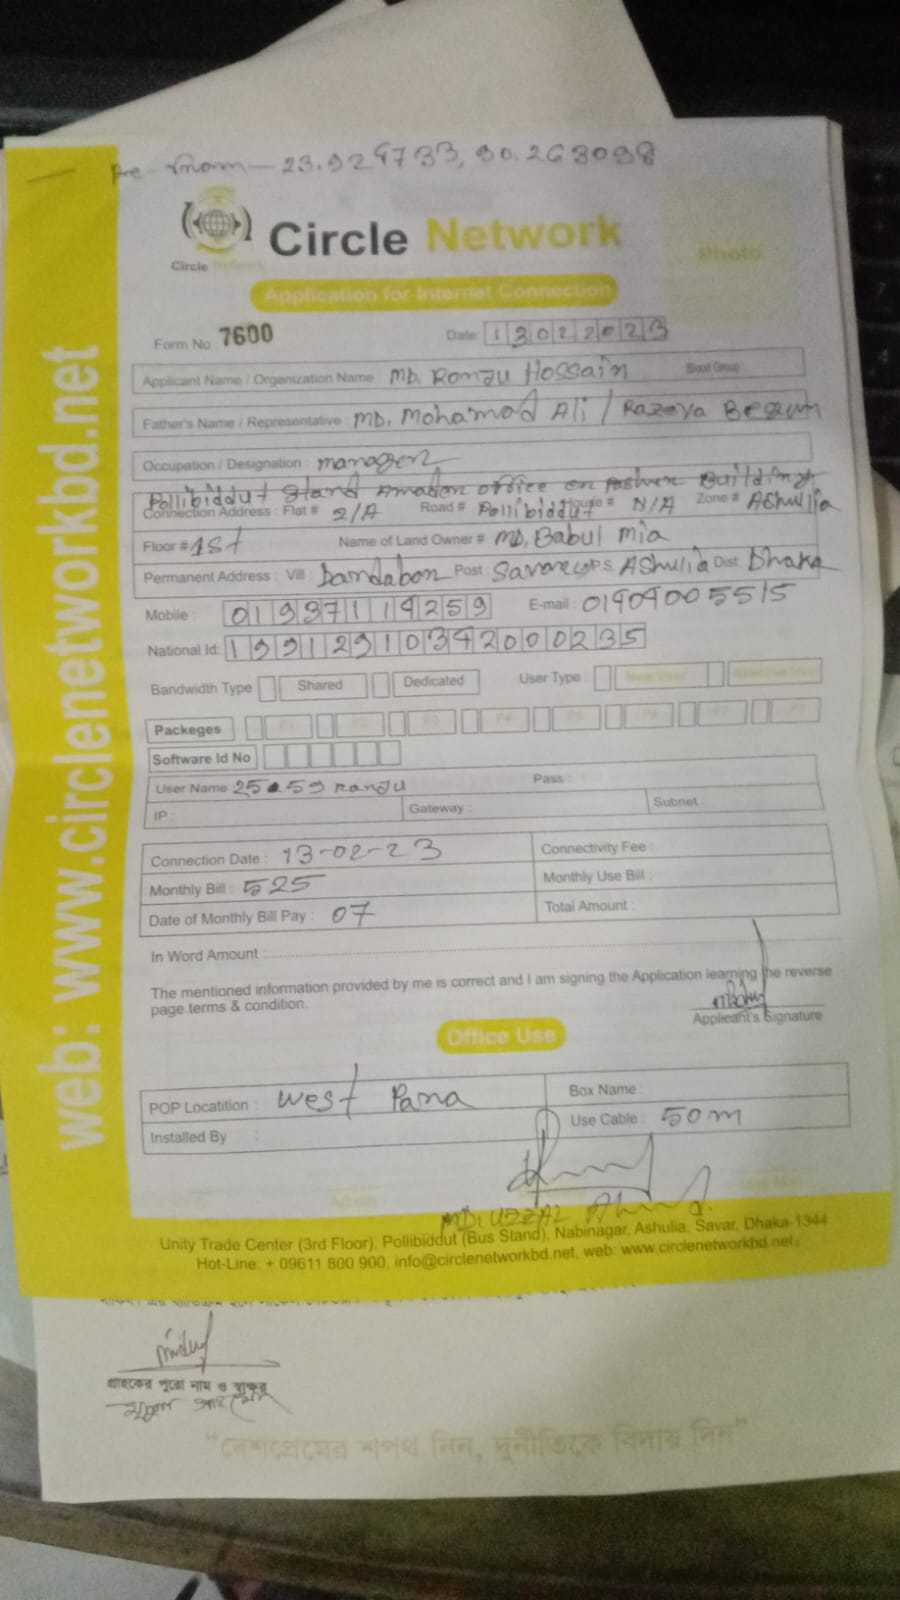 23.929733, 90.263098
Circle Network
Circle
Photo
Application for Internet Connection
Form No : 7600
Date: 13022023
Applicant Name / Organization Name : MD. Romju Hossain
Blood Group :
Father's Name / Representative : MD. Mohamad Ali / Razeya Begum
Occupation / Designation : manager
Pollibiddut Stand Amadon office on Building
Connection Address : Flat # 2/A Road # Pollibiddut House # N/A Zone # AShullia
Floor # 1St Name of Land Owner # MD. Babul mia
Permanent Address : Vill : Dandabon Post : P.S. AShulia Dist: Dhaka
Mobile : 01937114259 E-mail : 01909005515
National Id: 19912910342000235
Bandwidth Type Shared Dedicated User Type : New User
Packeges P1 P2 P3 P4 P5 P6 P7 P8
Software Id No
User Name Pass :
IP : Gateway : Subnet
Connection Date : 13-02-23 Connectivity Fee :
Monthly Bill : 525 Monthly Use Bill :
Date of Monthly Bill Pay : 07 Total Amount :
In Word Amount :
The mentioned information provided by me is correct and I am signing the Application learning the reverse
page terms & condition.
Applicant's Signature
Office Use
POP Locatition : West Para Box Name :
Installed By : Use Cable : 50m
Admin
MD. UZZAL Ahmed.
Unity Trade Center (3rd Floor), Pollibiddut (Bus Stand), Nabinagar, Ashulia, Savar, Dhaka-1344
Hot-Line: + 09611 800 900, info@circlenetworkbd.net, web: www.circlenetworkbd.net
web: www.circlenetworkbd.net
গ্রাহকের পুরো নাম ও স্বাক্ষর
"দেশপ্রেমের শপথ নিন, দুর্নীতিকে বিদায় দিন"